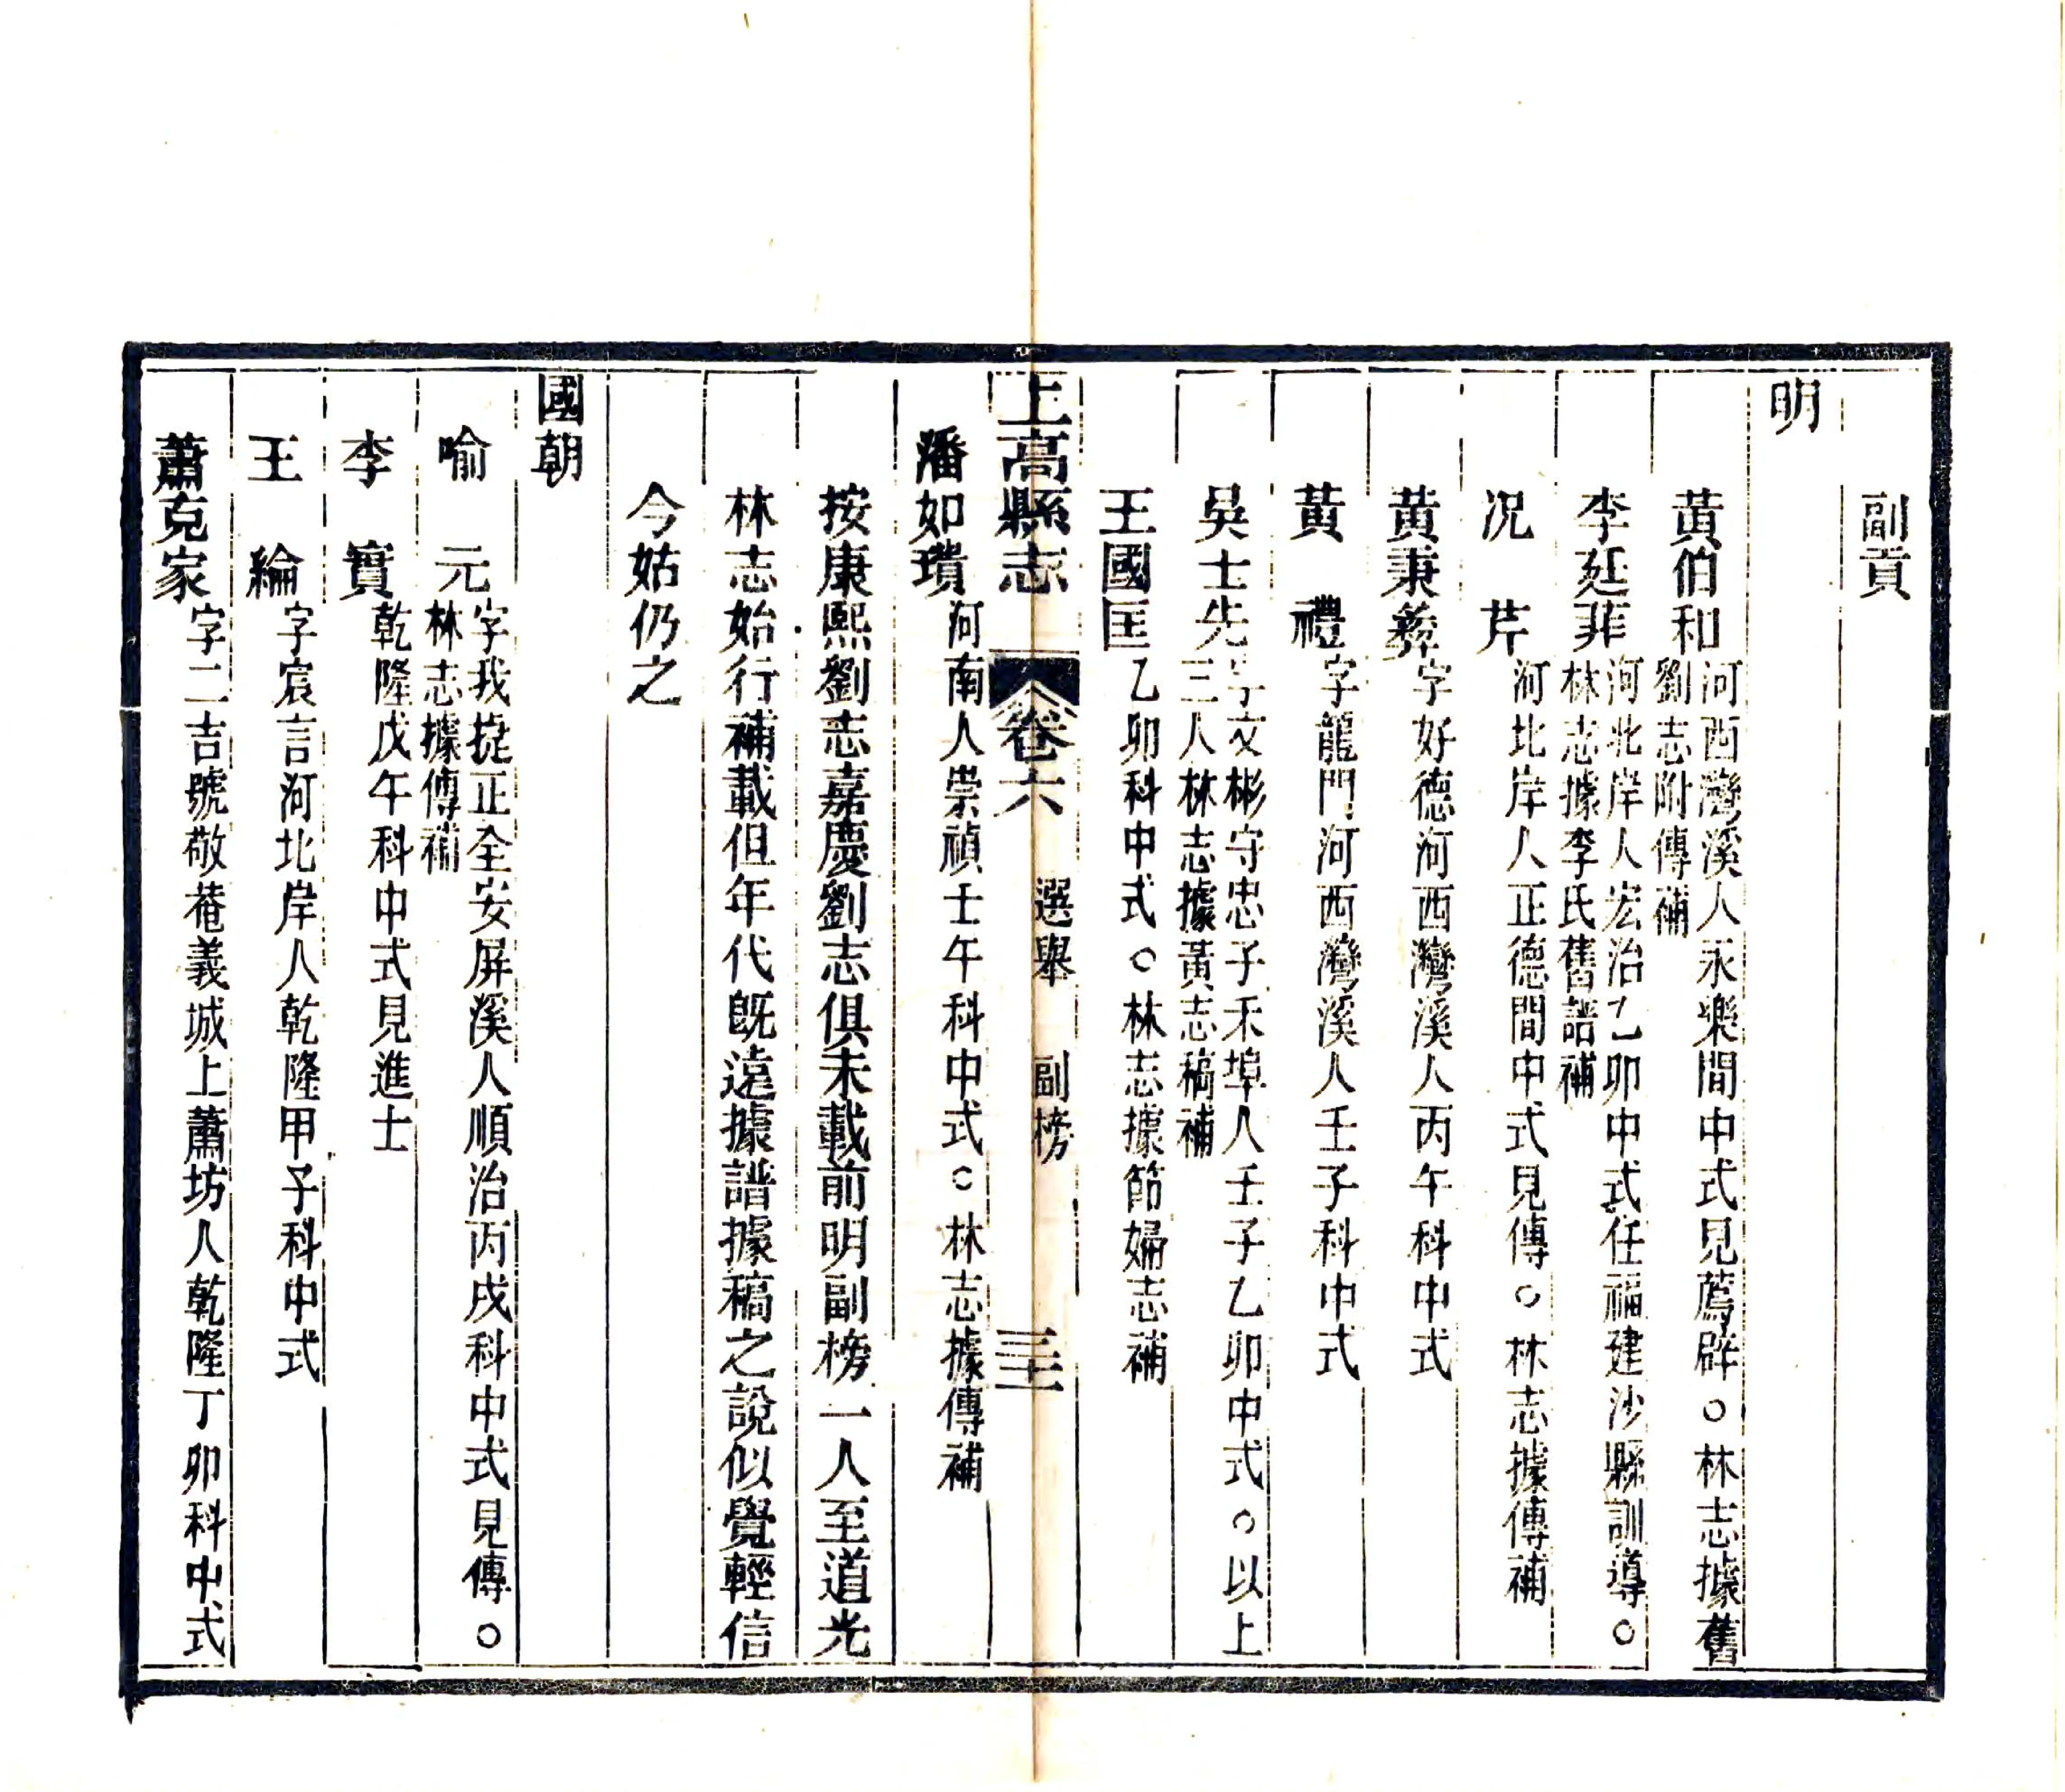 副貢
明
黃伯和 河西灣溪人永樂間中式見薦辟○林志據舊
劉志附傳補
李廷菲 河北岸人宏治乙卯中式任福建沙縣訓導○
林志據李氏舊譜補
况芹 河北岸人正德間中式見傳○林志據傳補
黃秉彝 字好德河西灣溪人丙午科中式
黃禮 字龍門河西灣溪人壬子科中式
吳士先 字文彬守忠子禾埠人壬子乙卯中式○以上
三人林志據黃志稿補
王國匡 乙卯科中式○林志據節婦志補
上高縣志 卷六 選舉 副榜 三十
潘如瓆 河南人崇禎壬午科中式○林志據傳補
按康熙劉志嘉慶劉志俱未載前明副榜一人至道光
林志始行補載但年代既遠據譜據稿之說似覺輕信
今姑仍之
國朝
喻元 字我㨗正全安屏溪人順治丙戌科中式見傳○
林志據傳補
李實 乾隆戊午科中式見進士
王綸 字宸言河北岸人乾隆甲子科中式
蕭克家 字二吉號敬菴義城上蕭坊人乾隆丁卯科中式